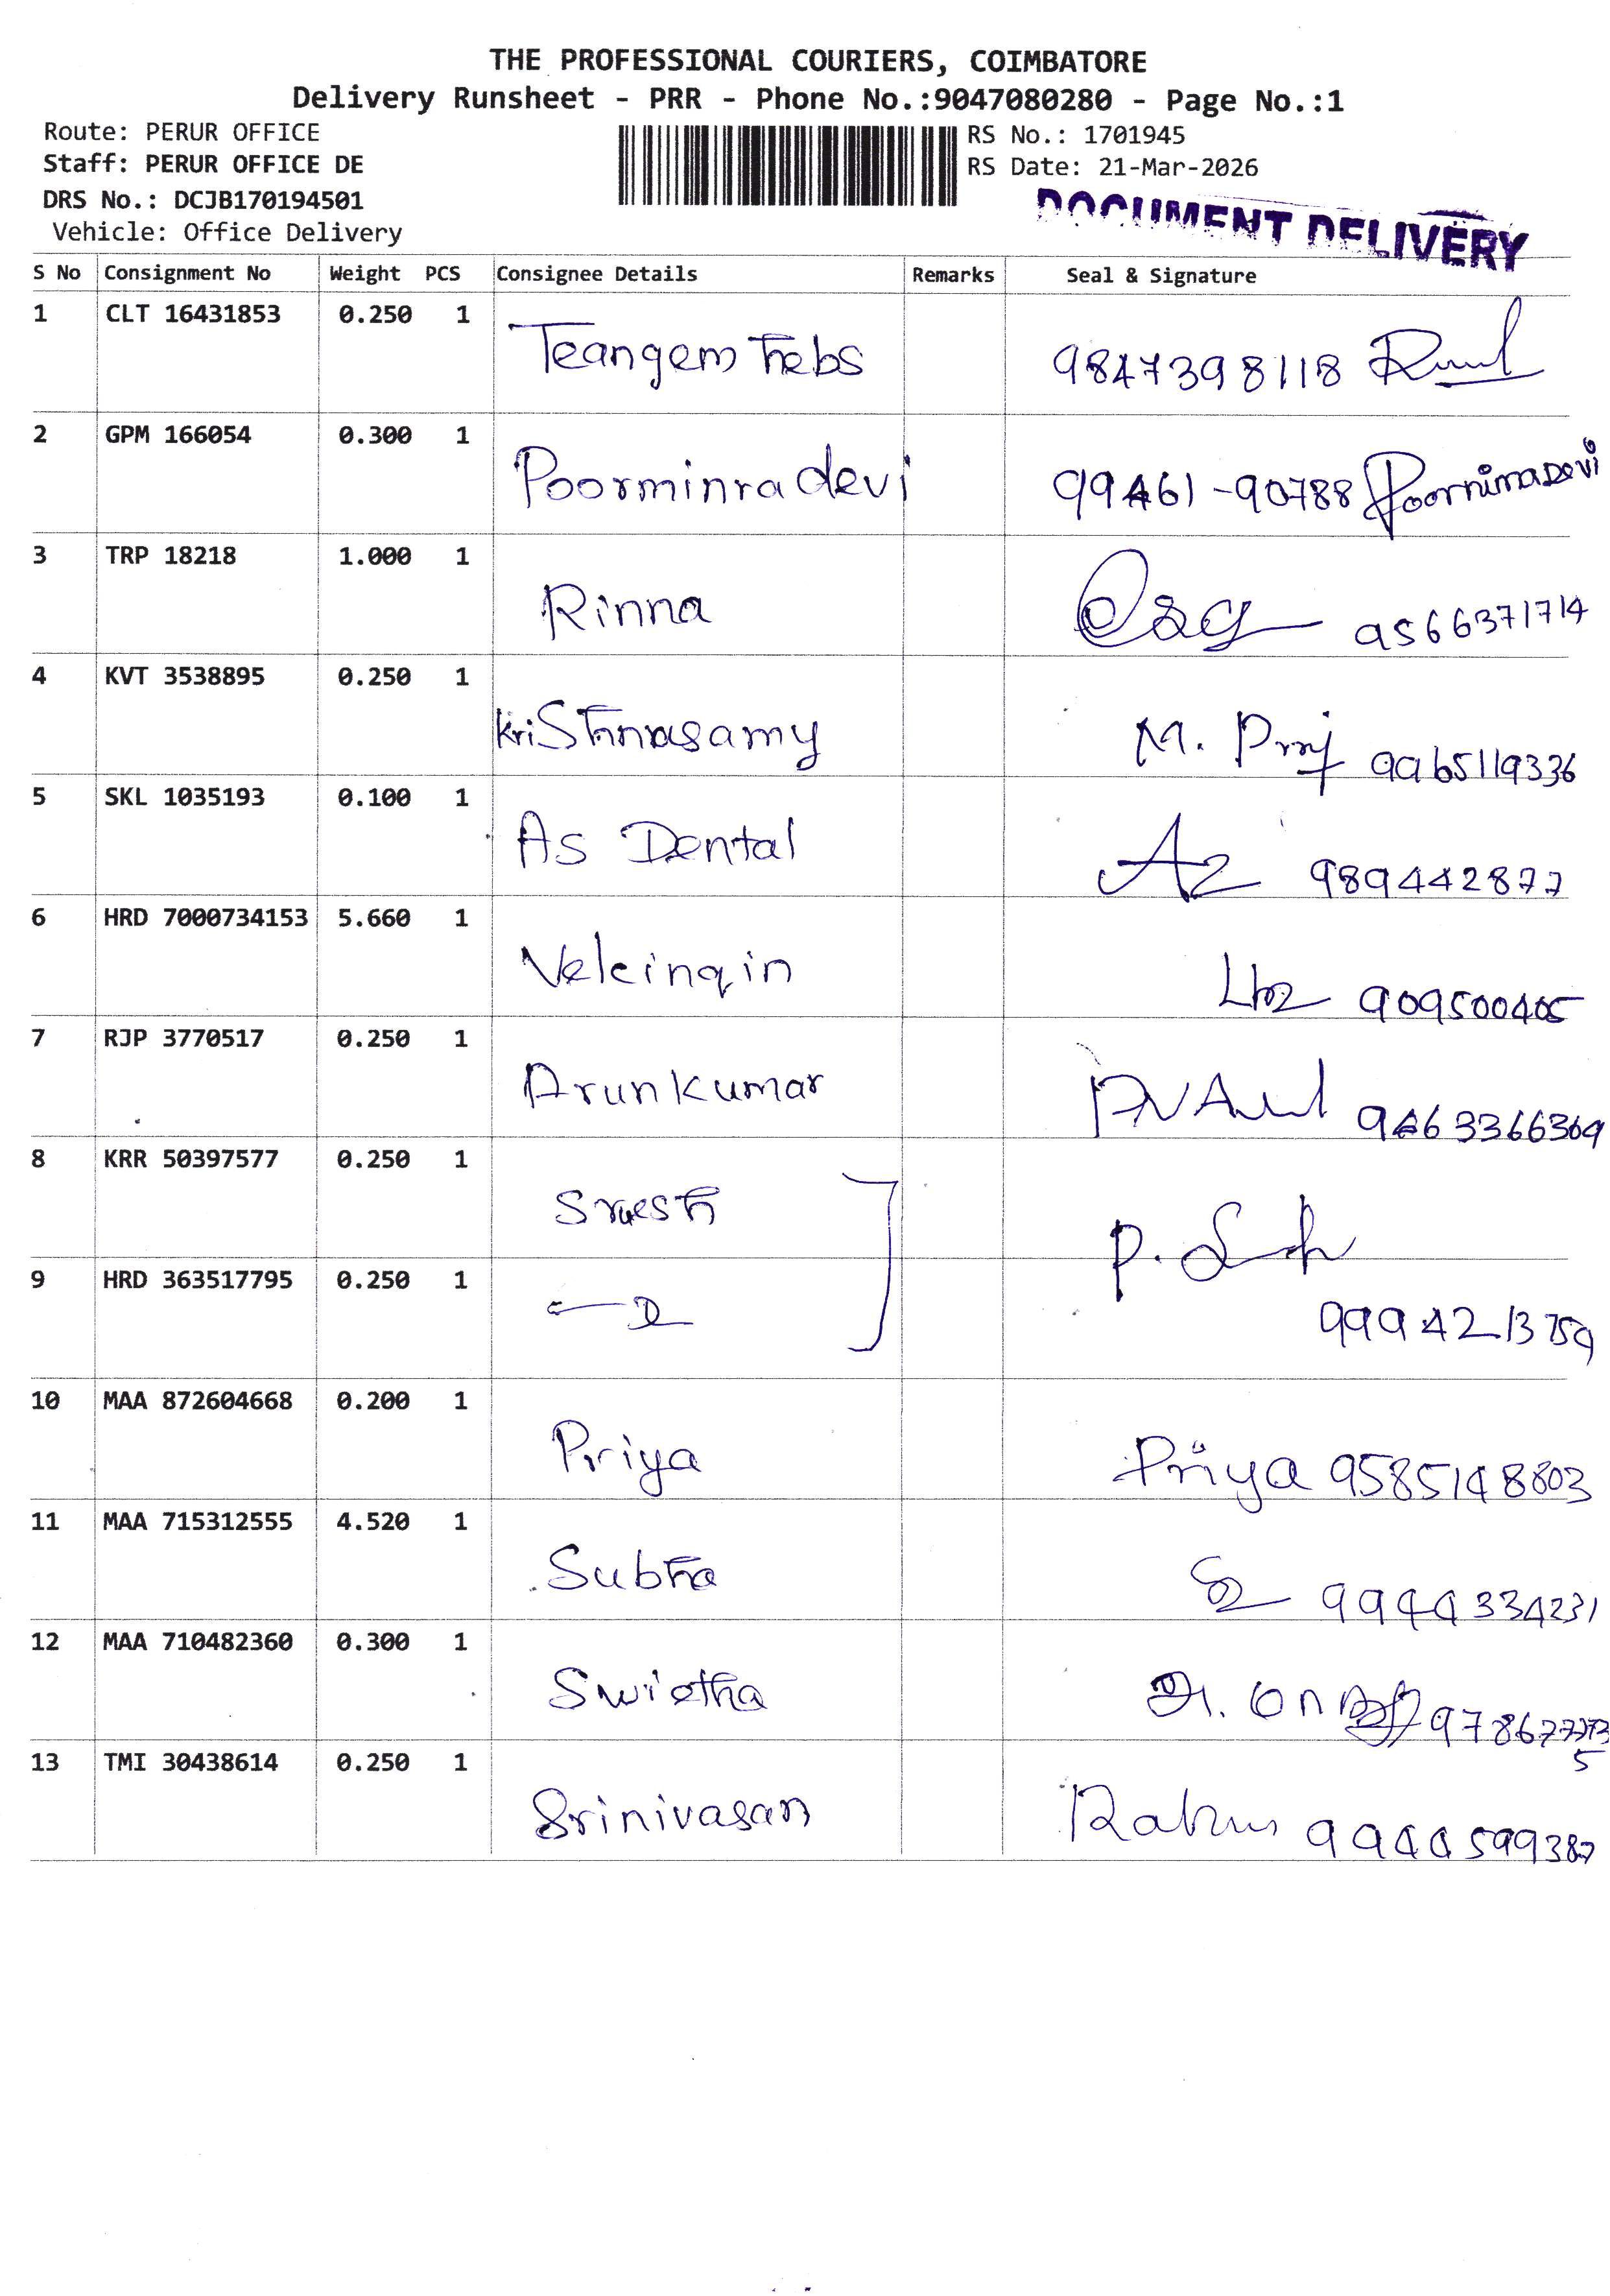 THE PROFESSIONAL COURIERS, COIMBATORE
Delivery Runsheet - PRR - Phone No.:9047080280 - Page No.:1
Route: PERUR OFFICE
Staff: PERUR OFFICE DE
DRS No.: DCJB170194501
Vehicle: Office Delivery
RS No.: 1701945
RS Date: 21-Mar-2026
DOCUMENT DELIVERY
S No Consignment No Weight PCS Consignee Details Remarks Seal & Signature
1 CLT 16431853 0.250 1 9847398118
2 GPM 166054 0.300 1 Poorminra devi 99461-90788 Poornima Devi
3 TRP 18218 1.000 1 Rinna 9566371714
4 KVT 3538895 0.250 1 M. 9965119336
5 SKL 1035193 0.100 1 As Dental 989442877
6 HRD 7000734153 5.660 1 909500405
7 RJP 3770517 0.250 1 Arunkumar
8 KRR 50397577 0.250 1
9 HRD 363517795 0.250 1 P.
9994213759
10 MAA 872604668 0.200 1 Priya Priya 9585148803
11 MAA 715312555 4.520 1 Subha 9944334231
12 MAA 710482360 0.300 1
13 TMI 30438614 0.250 1 Srinivasan 9944599387